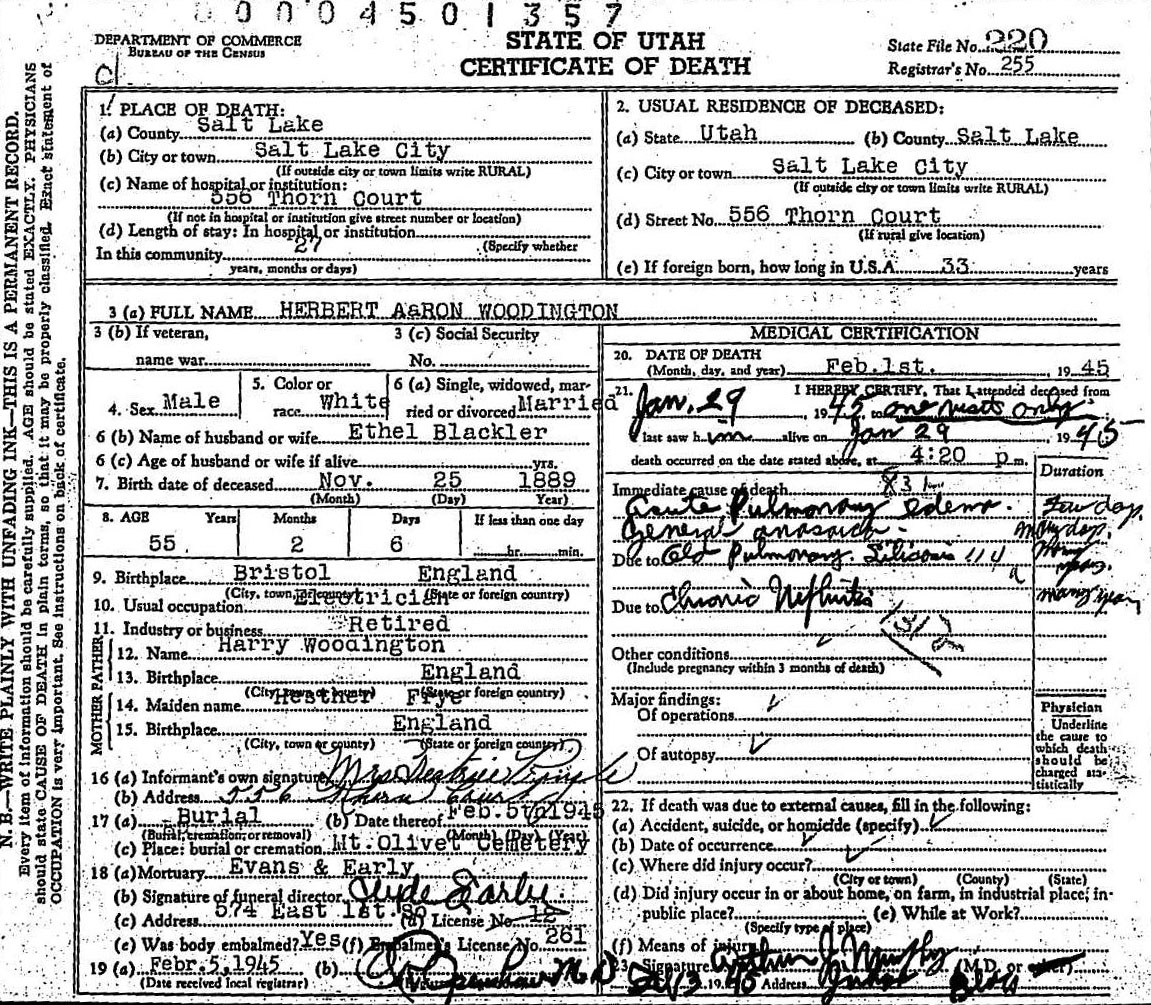 0 0 0 4 5 0 1 3 5 7
DEPARTMENT OF COMMERCE
BUREAU OF THE CENSUS
STATE OF UTAH
CERTIFICATE OF DEATH
State File No. 220
Registrar's No. 255
N. B.—WRITE PLAINLY WITH UNFADING INK—THIS IS A PERMANENT RECORD.
Every item of information should be carefully supplied. AGE should be stated EXACTLY. PHYSICIANS
should state CAUSE OF DEATH in plain terms, so that it may be properly classified. Exact statement of
OCCUPATION is very important. See instructions on back of certificate.
1. PLACE OF DEATH:
(a) County Salt Lake
(b) City or town Salt Lake City
(If outside city or town limits write RURAL)
(c) Name of hospital or institution:
556 Thorn Court
(If not in hospital or institution give street number or location)
(d) Length of stay: In hospital or institution
(Specify whether
In this community 27
years, months or days)
2. USUAL RESIDENCE OF DECEASED:
(a) State Utah (b) County Salt Lake
(c) City or town Salt Lake City
(If outside city or town limits write RURAL)
(d) Street No. 556 Thorn Court
(If rural give location)
(e) If foreign born, how long in U.S.A. 33 years
3 (a) FULL NAME HERBERT AaRON WOODINGTON
3 (b) If veteran,
name war
3 (c) Social Security
No.
4. Sex Male
5. Color or
race White
6 (a) Single, widowed, mar-
ried or divorced Married
6 (b) Name of husband or wife Ethel Blackler
6 (c) Age of husband or wife if alive yrs.
7. Birth date of deceased Nov. 25 1889
(Month) (Day) Year)
8. AGE Years Months Days If less than one day
55 2 6 hr. min.
9. Birthplace Bristol England
(City, town, or county) (State or foreign country)
10. Usual occupation Electrician
11. Industry or business Retired
FATHER
12. Name Harry Woodington
13. Birthplace England
(City, town or county) (State or foreign country)
MOTHER
14. Maiden name Hesther Frye
15. Birthplace England
(City, town or county) (State or foreign country)
16 (a) Informant's own signature Mrs
(b) Address 556 Thorn Court
17 (a) Burial (b) Date thereof Feb.5th1945
(Burial, cremation, or removal) (Month) (Day) (Year)
(c) Place: burial or cremation Mt. Olivet Cemetery
18 (a) Mortuary Evans & Early
(b) Signature of funeral director Clyde Early
(c) Address 574 East 1st. So (d) License No. 12
(e) Was body embalmed? Yes (f) Embalmer's License No. 261
19 (a) Febr. 5,1945 (b) M D
(Date received local registrar)
MEDICAL CERTIFICATION
20. DATE OF DEATH
(Month, day, and year) Feb.1st. 1945
21. I HEREBY CERTIFY, That I attended deceased from
Jan. 29, 1945, to one visit only
last saw him alive on Jan 29 1945
death occurred on the date stated above, at 4:20 p m.
Duration
Immediate cause of death
Acute Pulmonary edema. Few days.
General anasarca. Many days.
Due to Old Pulmonary Silicosis 114 a Many years.
Due to Chronic Nephritis many years
131 2
Other conditions
(Include pregnancy within 3 months of death)
Major findings:
Of operations
Of autopsy
Physician
Underline
the cause to
which death
should be
charged sta-
tistically
22. If death was due to external causes, fill in the following:
(a) Accident, suicide, or homicide (specify)
(b) Date of occurrence
(c) Where did injury occur?
(City or town) (County) (State)
(d) Did injury occur in or about home, on farm, in industrial place, in
public place? (e) While at Work?
(Specify type of place)
(f) Means of injury
23. Signature Arthur J. Murphy (M.D. or other)
Feb 3 1945 Address Judge Bldg